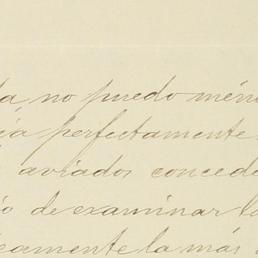 da, no puedo ménos
perfectamente
aviados concede
io de examinar la
camente la más